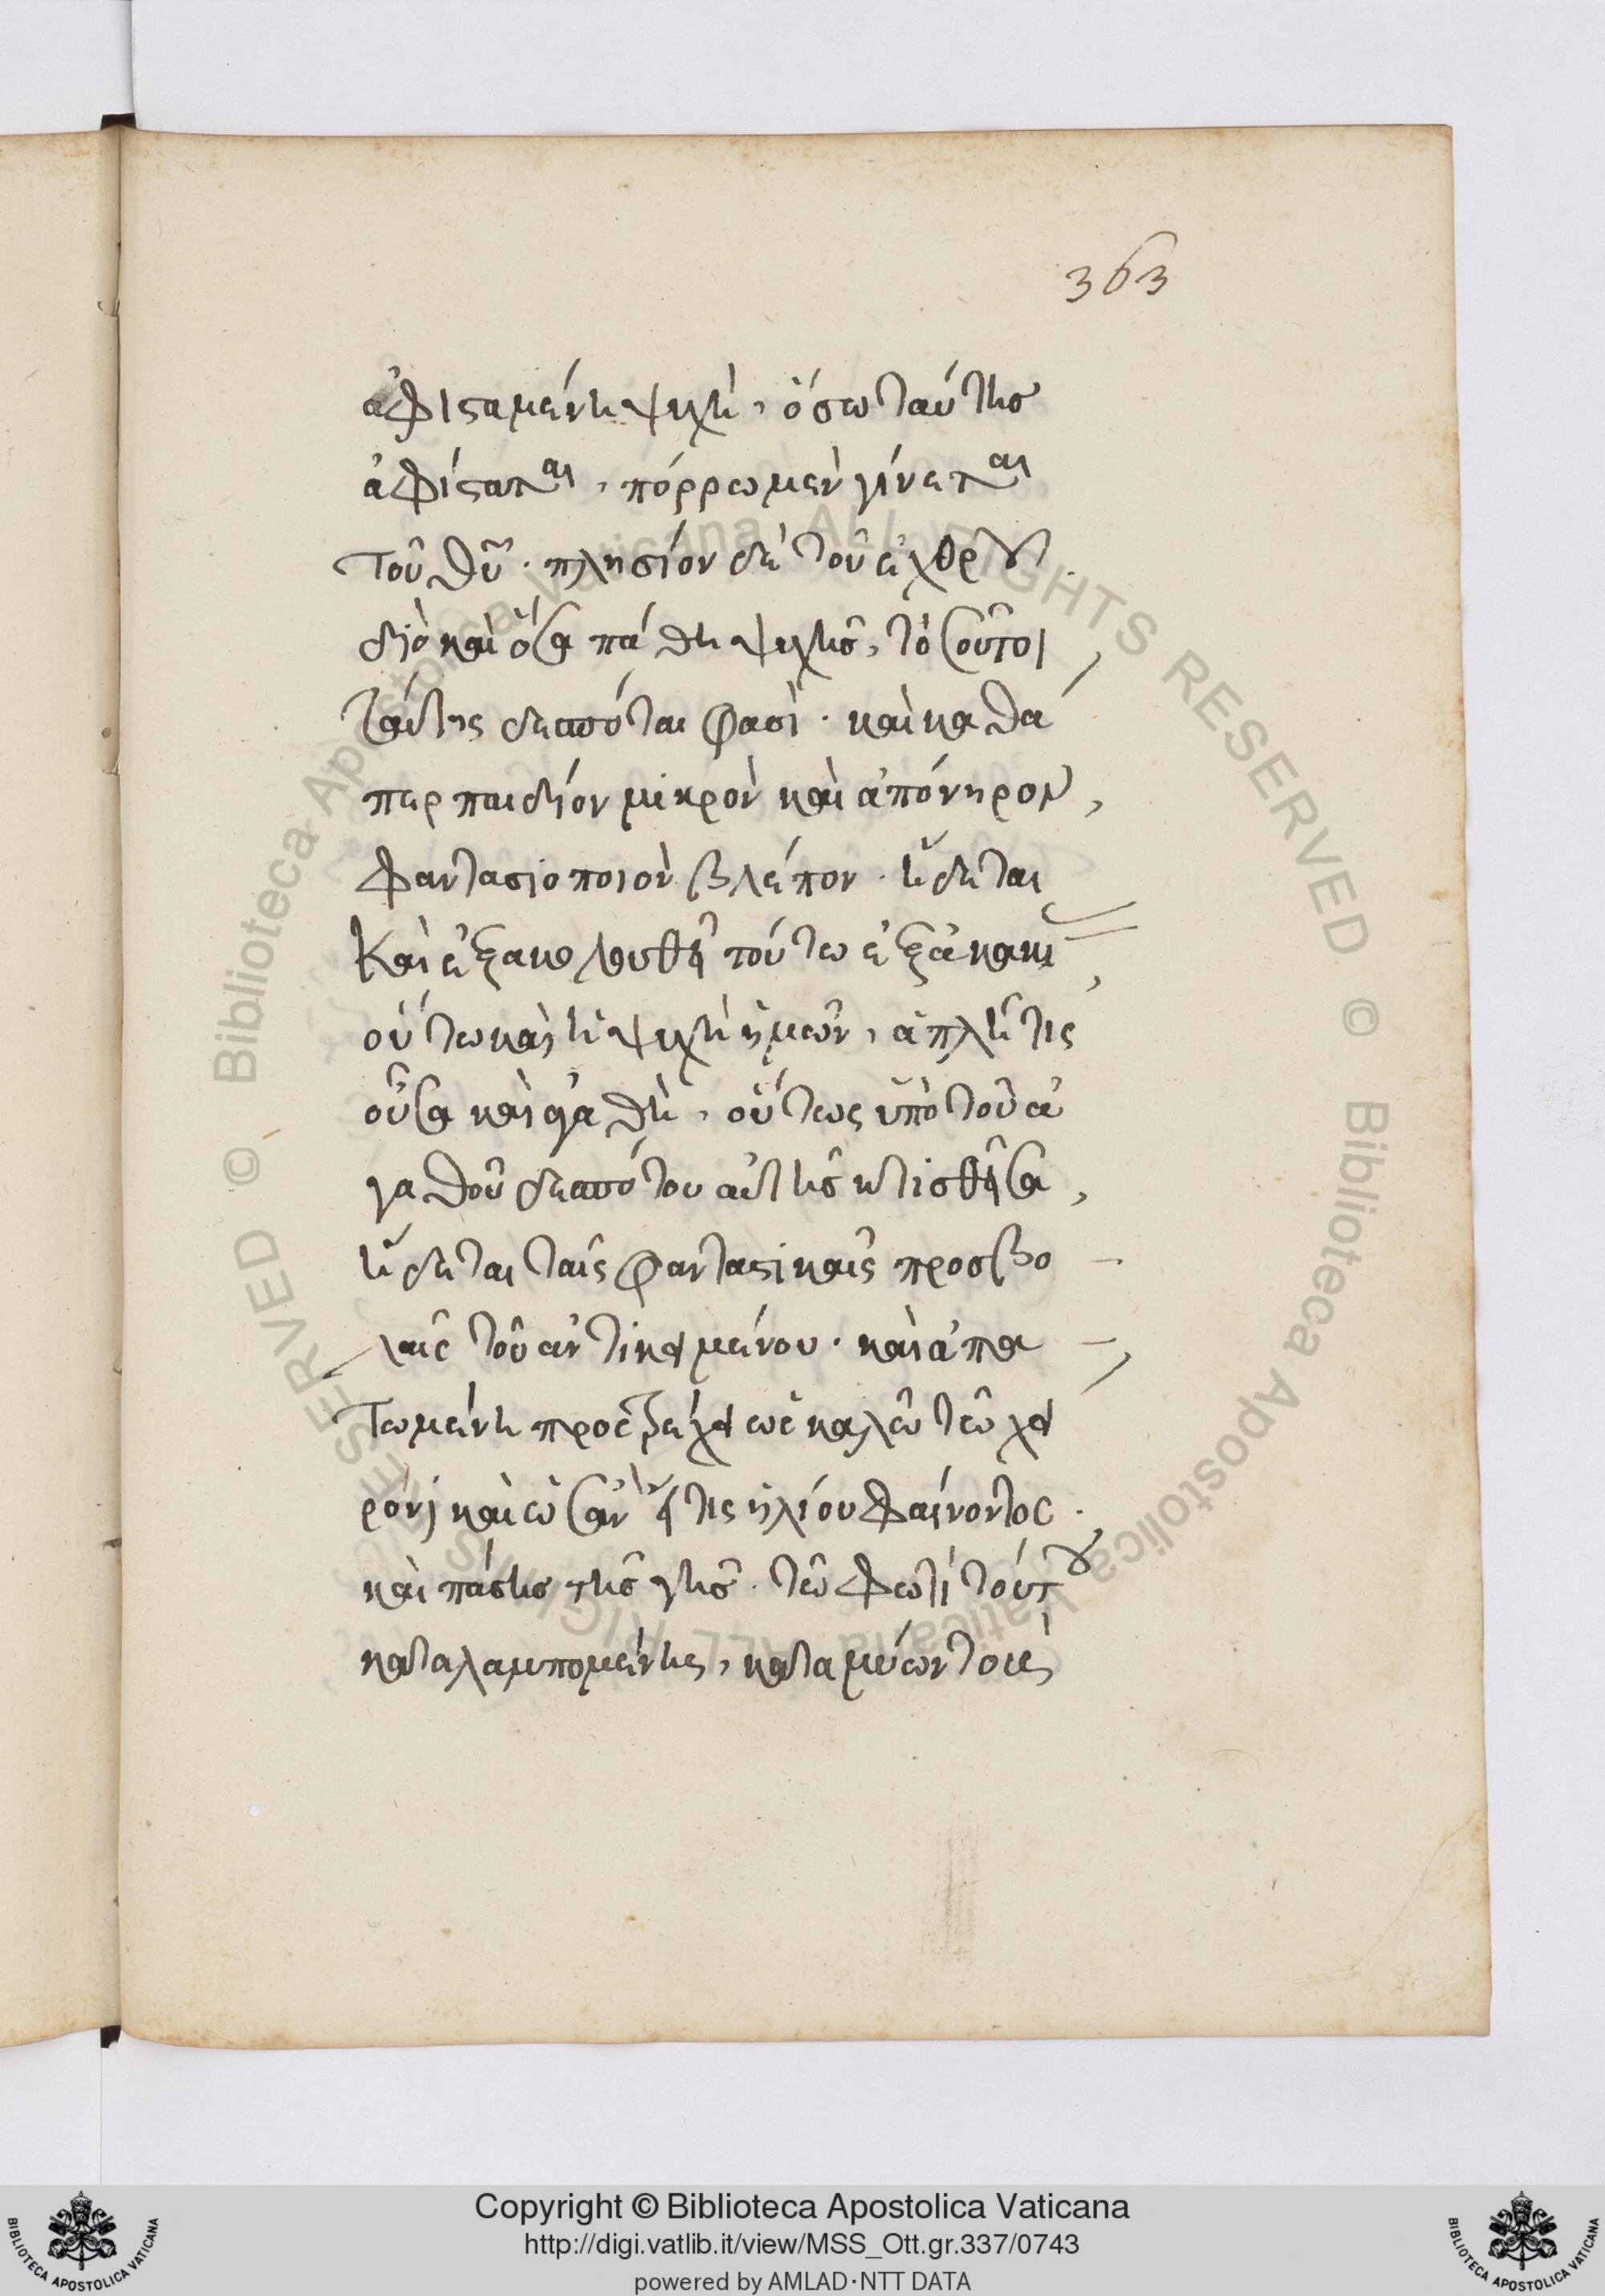 363
ἀφισαμένη ψυχὴ, ὅσω ταύτης
ἀφίσαται, πόρρω μὲν γίνεται
τοῦ θῦ. πλησίον δὲ τοῦ ἐχθροῦ.
διὸ καὶ ὅσα πάθη ψυχῆς, τοσοῦτοι,
ταύτης δεσπόται φασὶ. καὶ καθά
περ παιδίον μικρὸν καὶ ἀπόνηρον,
φαντασιοποιὸν βλέπον. ἥδεται
καὶ ἐξακολουθεῖ τούτω ἐξ ἀκακί
,
οὕτω καὶ ἡ ψυχὴ ἡμῶν, ἁπλῆ τις
οὖσα καὶ ἀγαθὴ, οὕτως ὑπὸ τοῦ ἀ
γαθοῦ δεσπότου αὐτῆς κτισθεῖσα,
ἥδεται ταῖς φαντασικαῖς προσβο-
λαῖς τοῦ ἀντικειμένου. καὶ ἀπα-
τωμένη προστρέχει ὡς καλῶ τῶ χεί
ρονι καὶ ὡσὰν εἴ τις ἡλίου φαίνοντος.
καὶ πάσης τῆς γῆς. τῶ φωτὶ τούτου
καταλαμπομένης, καταμύων τοὺς
Copyright © Biblioteca Apostolica Vaticana
http://digi.vatlib.it/view/MSS_Ott.gr.337/0743
powered by AMLAD·NTT DATA
BIBLIOTECA APOSTOLICA VATICANA
BIBLIOTECA APOSTOLICA VATICANA
© Biblioteca Apostolica Vaticana ALL RIGHTS RESERVED © Biblioteca Apostolica Vaticana ALL RIGHTS RESERVED